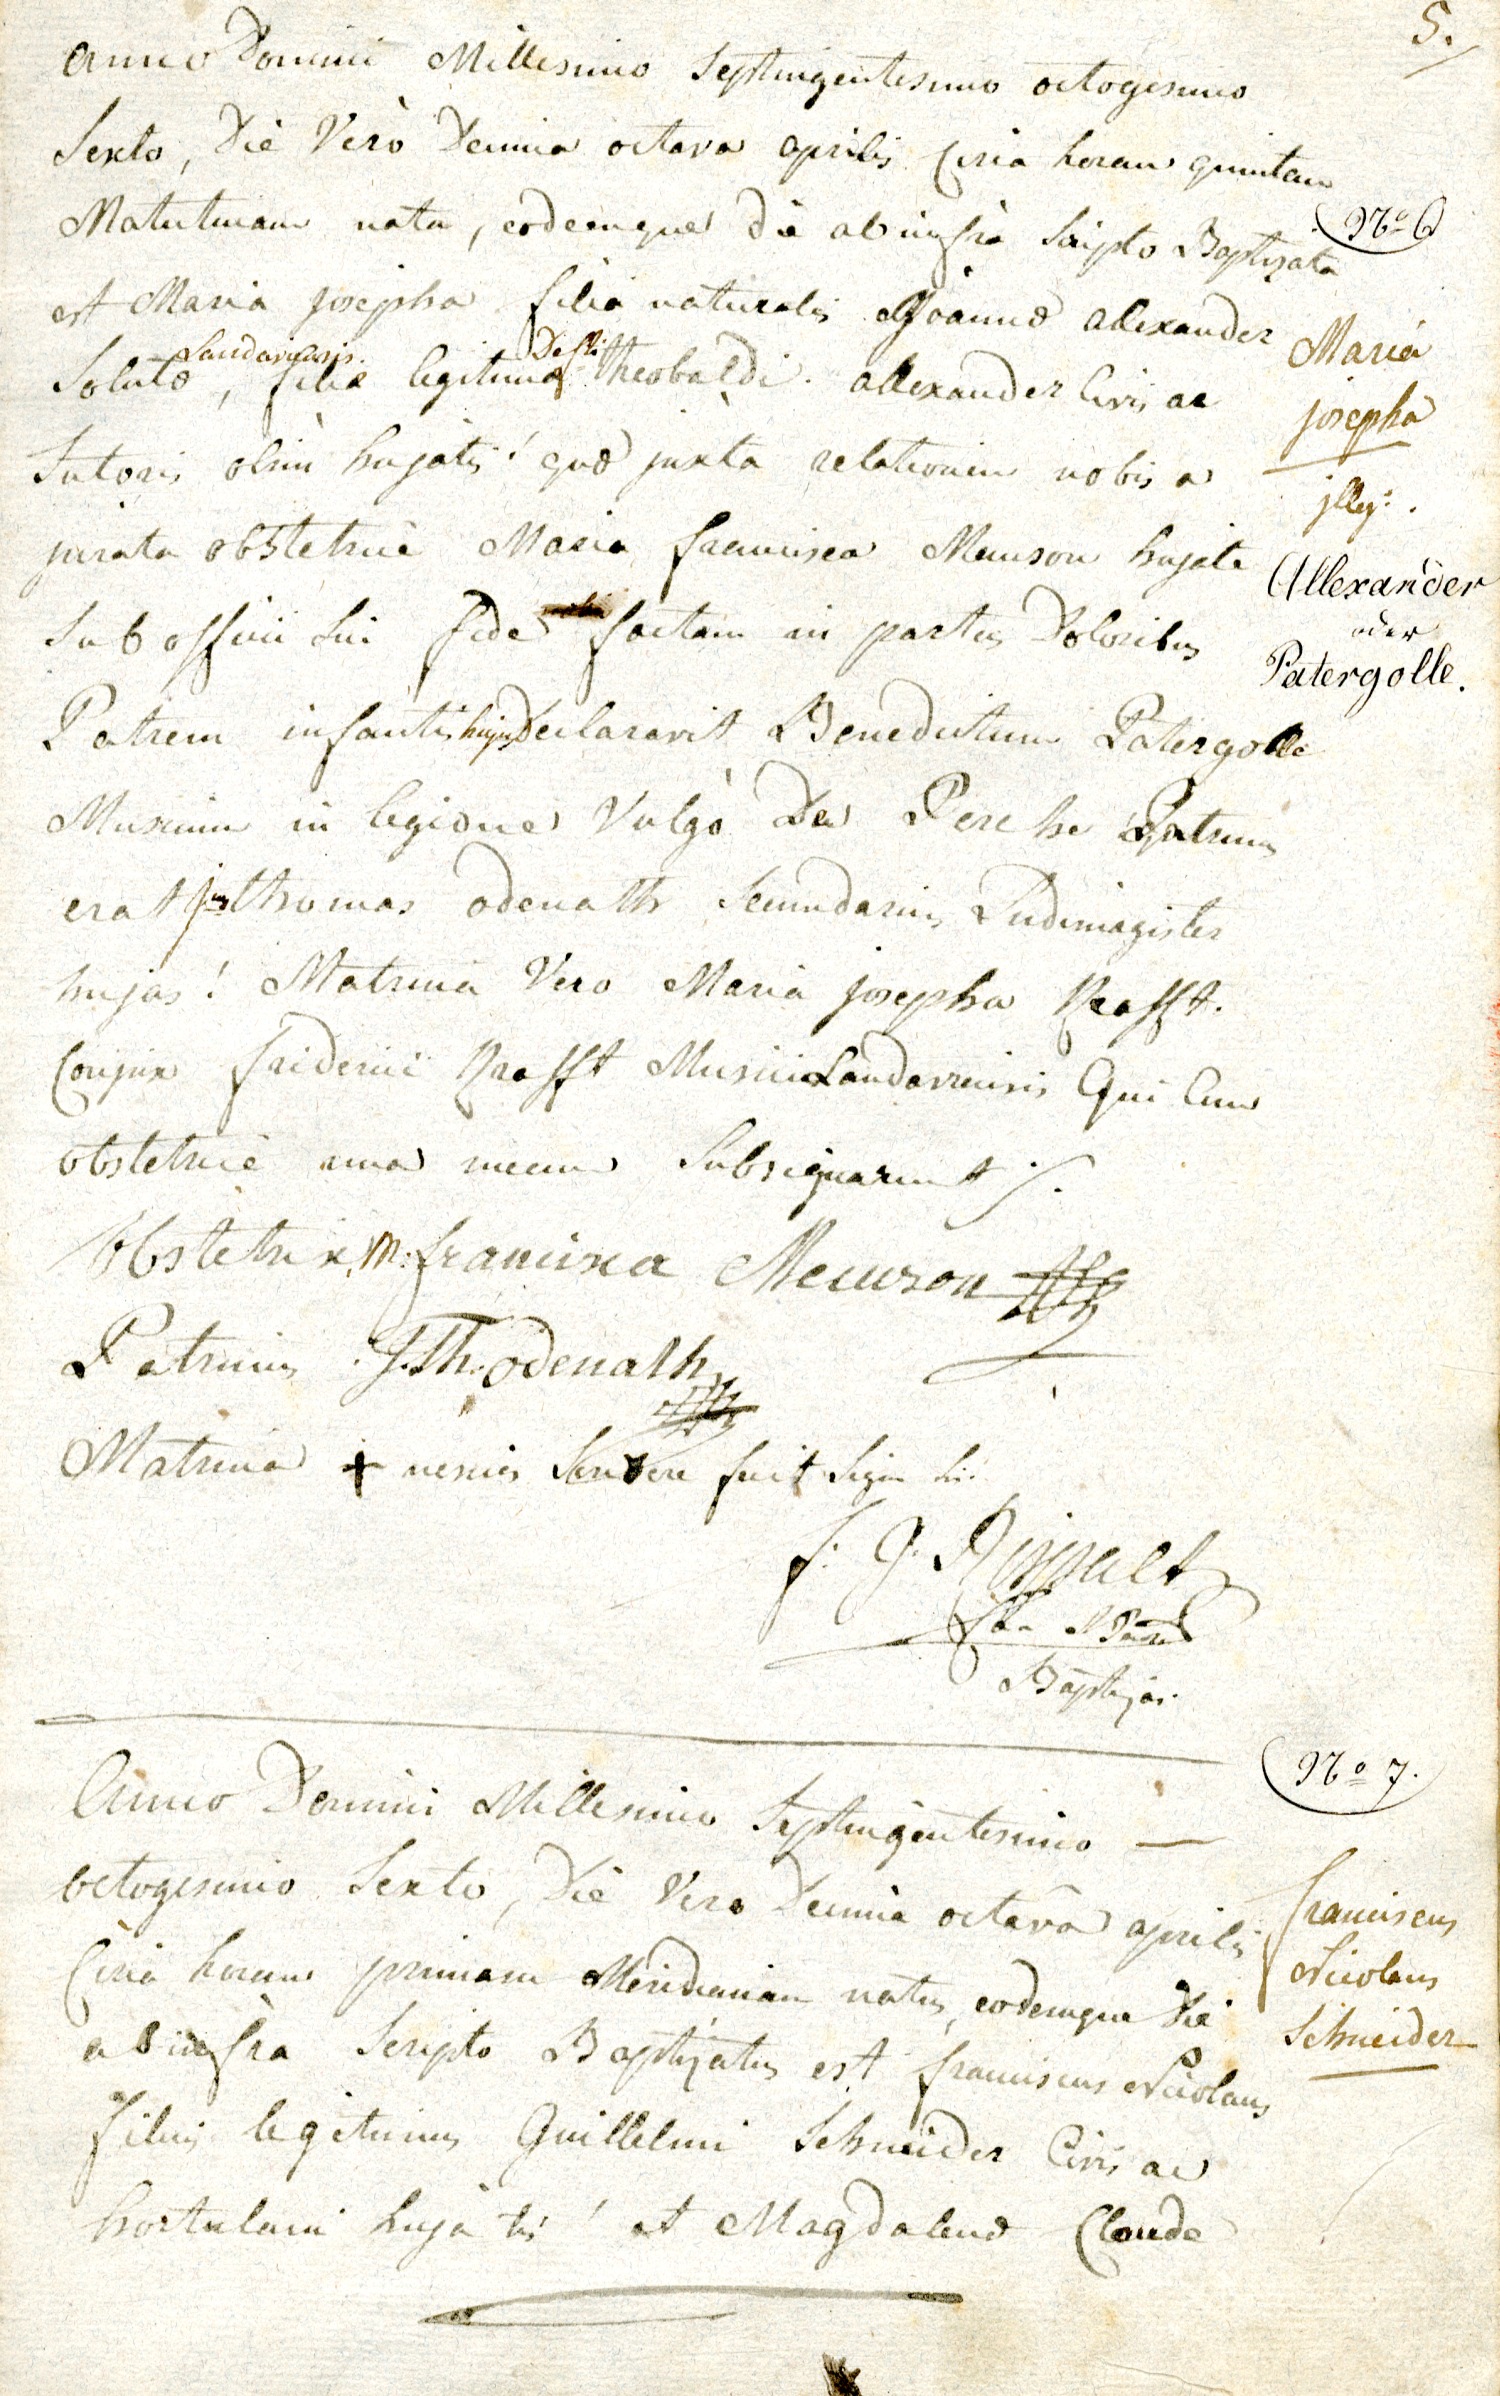 5.
Anno Domini Millesimo Septingentesimo octogesimo
Sexto, Die Verò Decima octava aprilis Circa horam quintam
Matutinam nata, eodemque die ab infra Scripto Baptizata
Nº 6
est Maria josepha filia naturalis Joannæ allexander
Solutæ Landaviensis, filiæ legitimæ Defti Theobaldi allexander Civis ac
Sutoris olim hujatis! quæ juxta relationem nobis a
jurata obstetrice Maria francisca Meurson hujate
Sub officii Sui fide factam in partus Doloribus
Patrem infantis hujus Declaravit Benedictum Patergolle
Musicum in legione Vulgò De Perche Patrinus
erat jos thomas odenath Secundarius Ludimagister
hujas! Matrina Vero Maria josepha Krafft.
Conjux friderici Krafft Musici Landaviensis Qui Cum
obstetrice una mecum Subsignarunt
Maria
josepha
jlleg:.
Allexander
oder
Patergolle.
Obstetrix M: francisca Meurson
Patrinus J. Th. odenath
Matrina + nescia Scribere fecit Sign
f: g:
Baptizas.
Nº 7.
Anno Domini Millesimo Septingentesimo —
octogesimo Sexto, Die Vero Decima octava aprilis
Circa horam primam Meridianam natus, eodemque Die
ab infra Scripto Baptizatus est franciscus Nicolaus
filius legitimus Guillelmi Schneider Civis ac
hortulani hujatis! et Magdalenæ Claude
franciscus
Nicolaus
Schneider